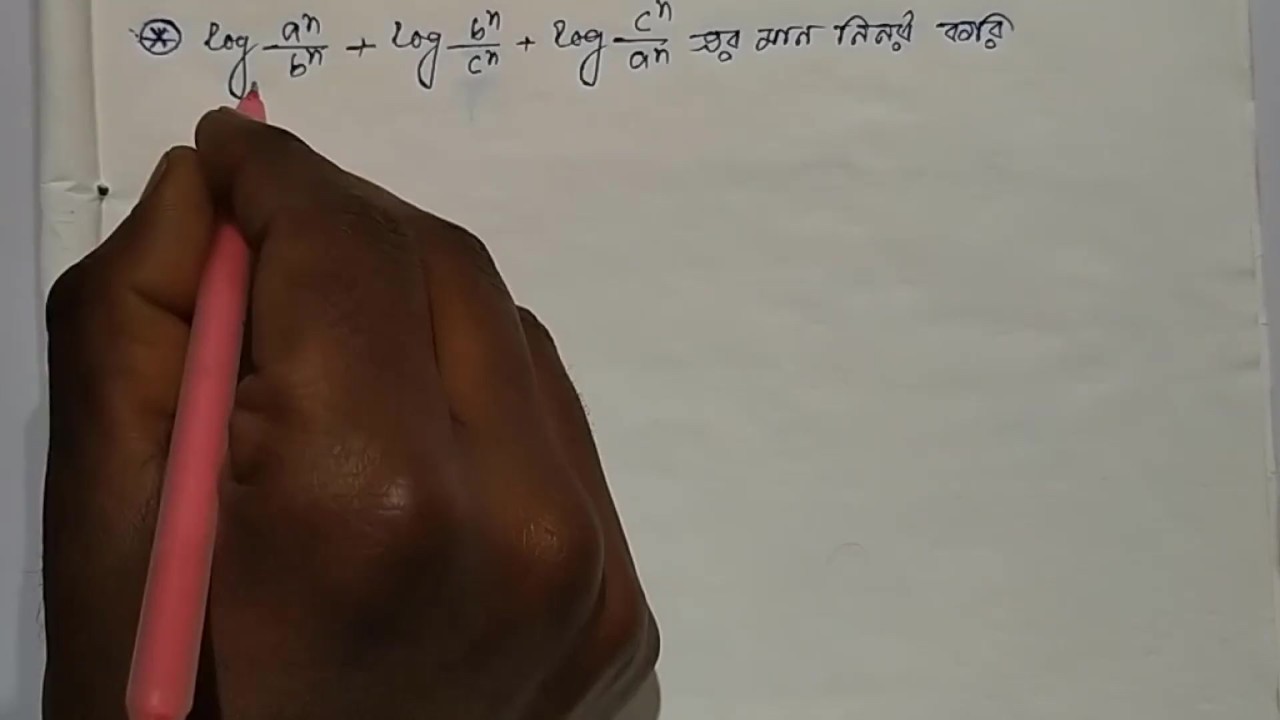 ⊛ log aⁿ/bⁿ + log bⁿ/cⁿ + log cⁿ/aⁿ এর মান নির্নয় করি